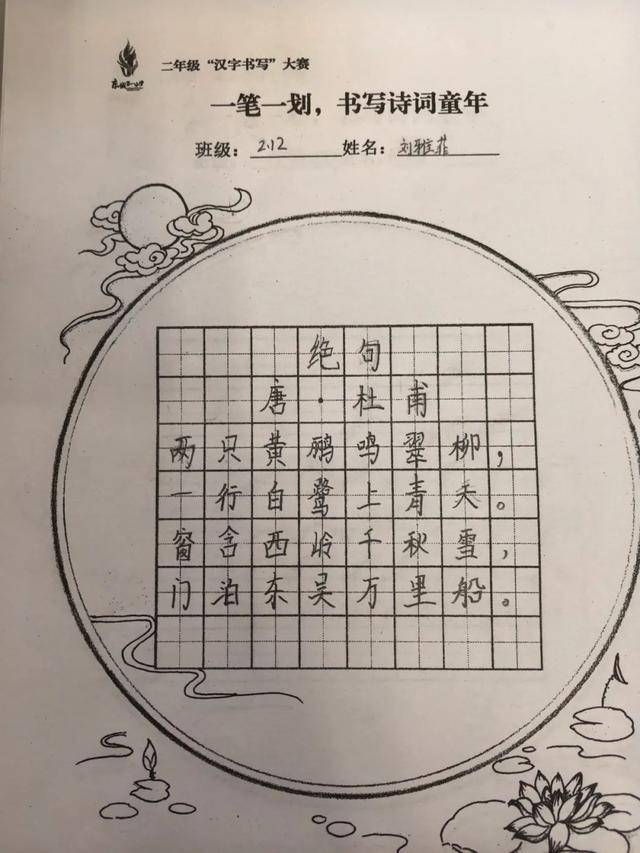 二年级“汉字书写”大赛
一笔一划，书写诗词童年
班级：2.12 姓名：刘雅菲
绝句
唐·杜甫
两只黄鹂鸣翠柳，
一行白鹭上青天。
窗含西岭千秋雪，
门泊东吴万里船。